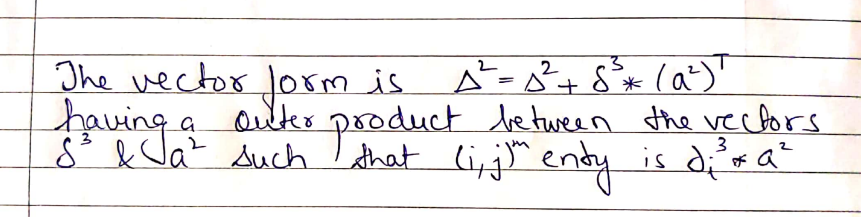 The vector form is Δ² = Δ² + δ³ * (a²)ᵀ
having a outer product between the vectors
δ³ & a² such that (i,j)ᵐ enty is ∂ᵢ³ * a²